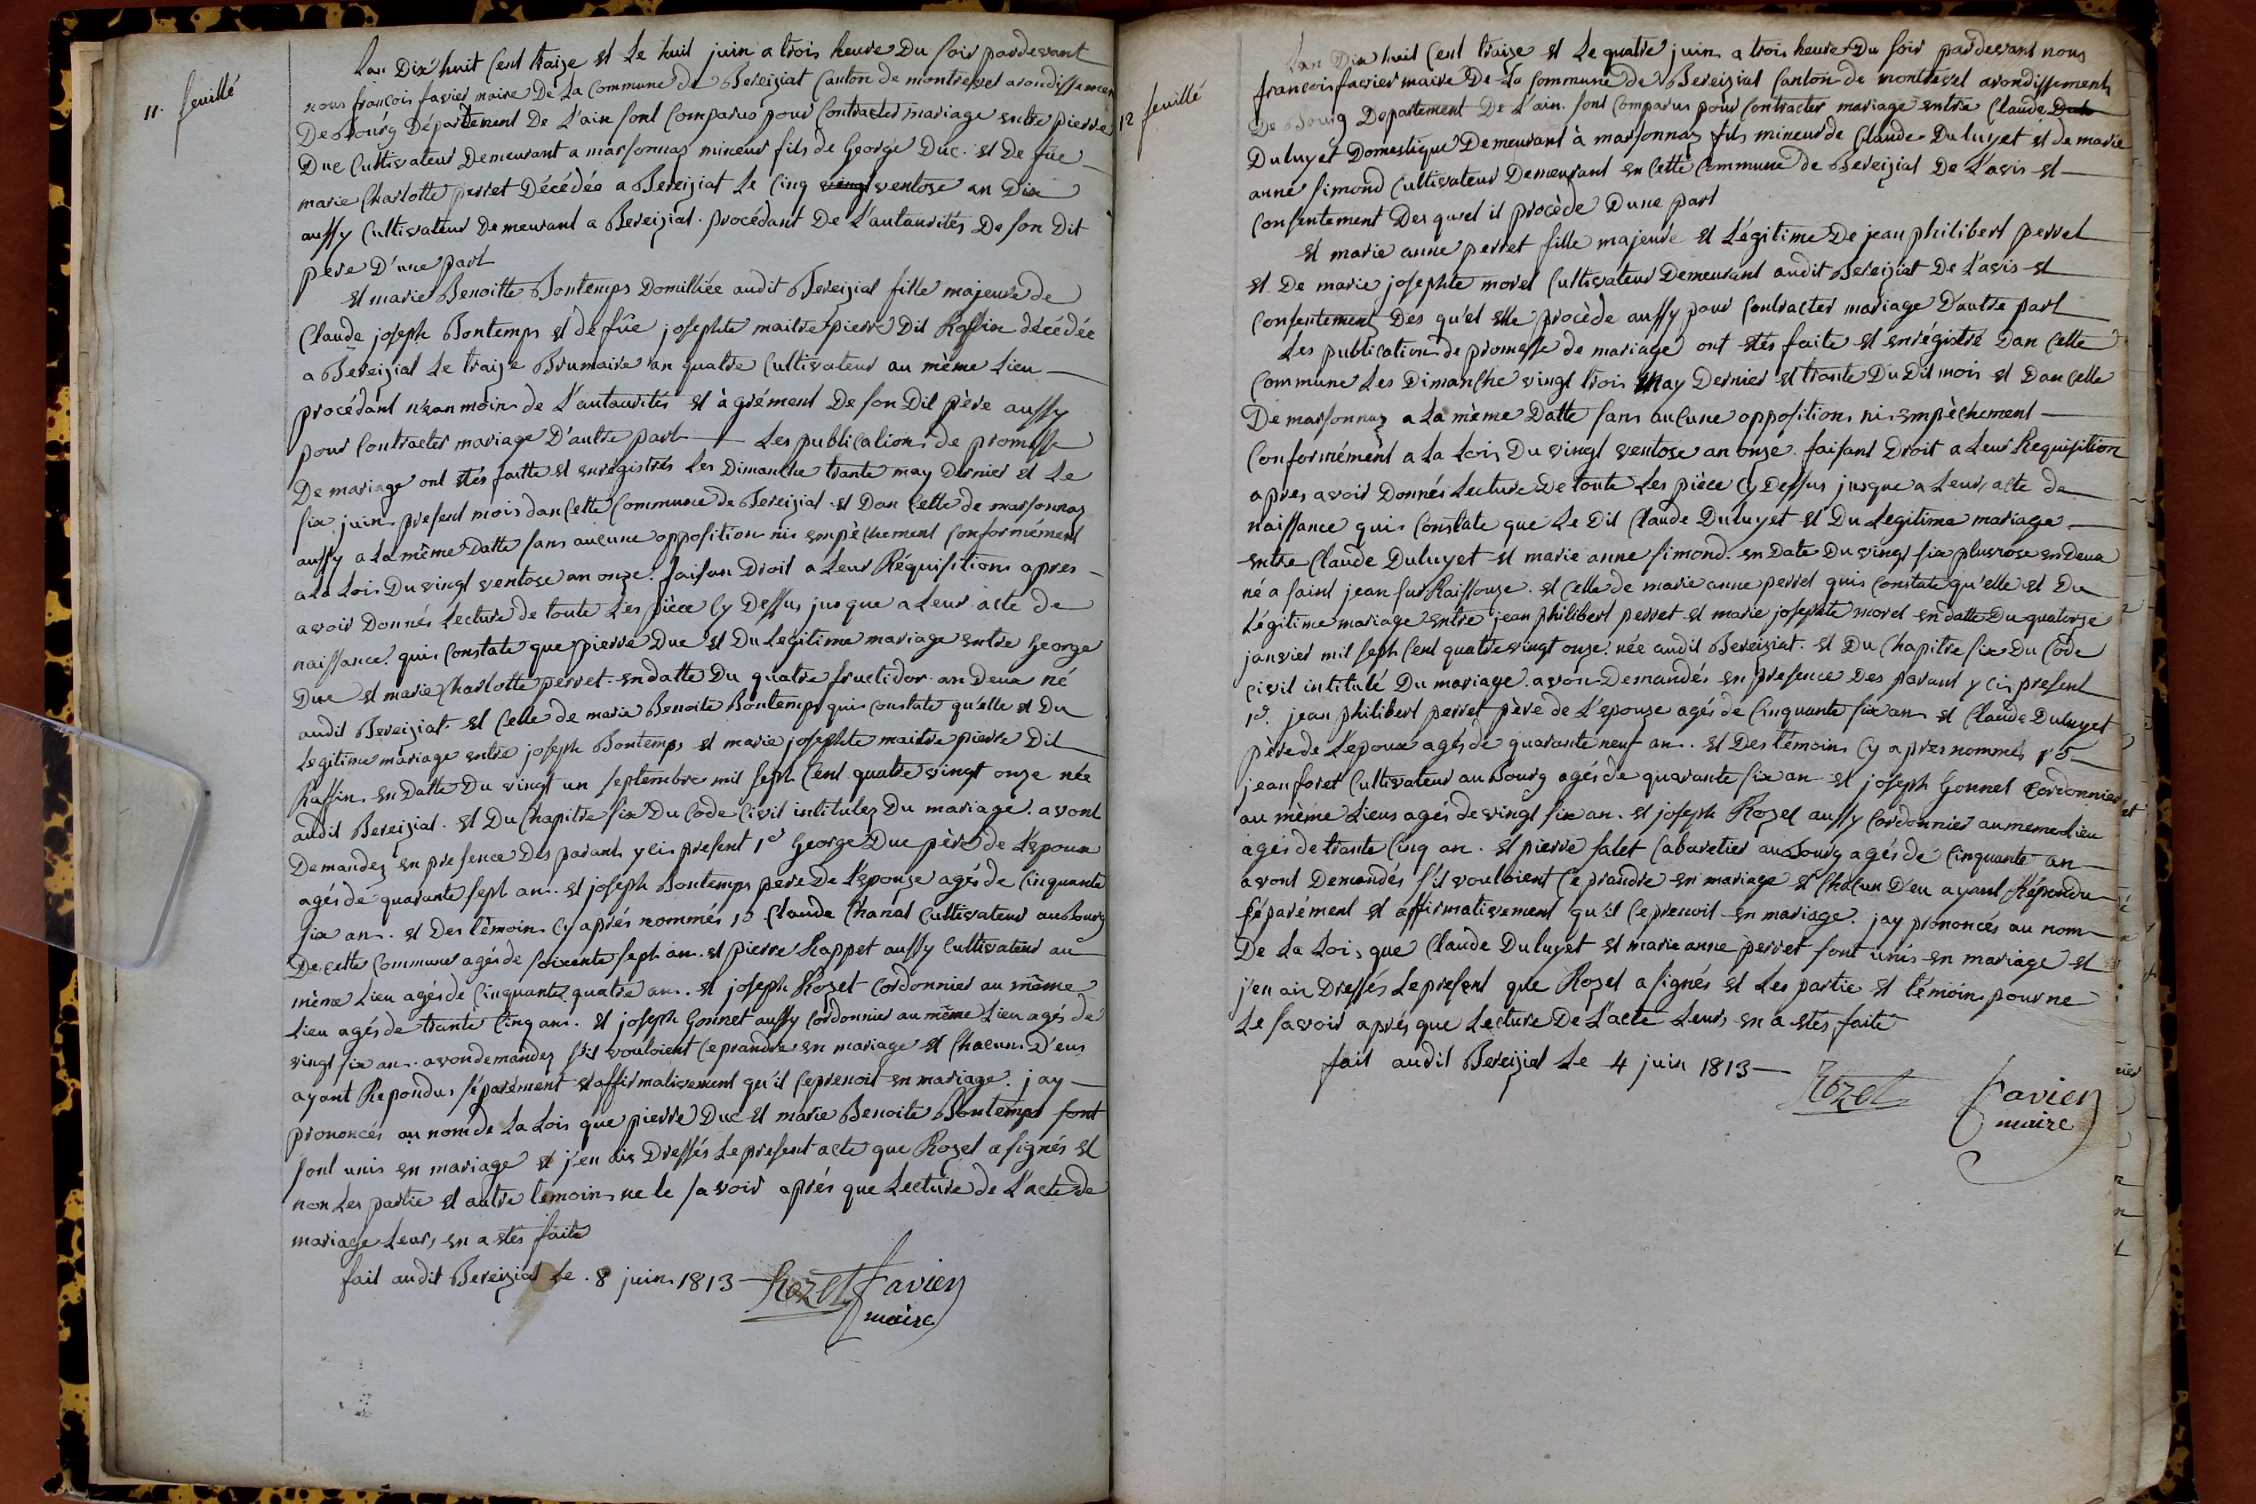 11. feuillé
Lan Dix huit Cent traize et Le huit juin a trois heure Du soir pardevant
nous françois favier maire De La Commune de Bereiziat Canton de montrevel arondissement
De Bourg Département De L'ain sont Comparus pour Contracter mariage entre pierre
Duc Cultivateur Demeurant a marsonnas mineur fils de George Duc. et De füe
marie Charlotte perret Décédée a Bereiziat Le Cinq vingt ventose an Dix
aussy Cultivateur Demeurant a Bereiziat. procédant De L'autaurités De son Dit
père D'une part
et marie Benoitte Bontemps Domilliée audit Bereiziat fille majeure de
Claude joseph Bontemps et de füe josephte maitre pierre Dit Raffin décédée
a Bereiziat Le traize Brumaire an quatre Cultivateur au même Lieu
procédant néan moin de L'autaurités et à grément De son Dit père aussy
pour Contracter mariage D'autre part Les publications de promesse
De mariage ont étés faitte et enrégistrés Les Dimanche trante may dernier et Le
six juin present mois dan Cette Commune de Bereiziat et Dan Celle de marsonnas
aussy a La même Datte sans aucune opposition ni empèchement Conformément
a La Loi Du vingt ventose an onze. faisan Droit a Leur Réquisition apres
avoir Donnés Lecture de toute Les pièce Cy Dessus jusque a Leur acte de
naissance. qui Constate que pierre Duc et Du Légitime mariage entre George
Duc et marie Charlotte perret. en datte Du quatre fructidor an Deux né
audit Bereiziat. et Celle de marie Benoite Bontemps qui constate qu'elle et Du
Legitime mariage entre joseph Bontemps et marie josephte maitre pierre Dit
Raffin en Datte Du vingt un septembre mil sept Cent quatre vingt onze née
audit Bereiziat. et Du Chapitre six Du Code Civil intitulez Du mariage. avont
Demandez en presence Des parant y ci present 1º George Duc père de L'epoux
agés de quarante sept an. et joseph Bontemps pere De L'epouze agés de Cinquante
six an. et Des témoin Cy après nommés 1º Claude Chanal Cultivateur au bourg
De Cette Commune agés de soixante sept an. et pierre Rappet aussy Cultivateur au
même Lieu agés de Cinquante quatre an. et joseph Rozet Cordonnier au même
Lieu agés de trante Cinq an. et joseph Gonnet aussy Cordonnier au même Lieu agés de
vingt six an. avon demandez s'il vouloient Ce prandre en mariage et Chacun D'eux
ayant Repondus séparément et affirmativement qu'il Ce prenoit en mariage. j ay
prononcés au nom de La Loi que pierre Duc et marie Benoite Bontemps sont
sont unis en mariage et j'en ais Dressés Le present acte que Rozet a signés et
non Les partie et autre temoin ne le savoir après que Lecture de L'acte de
mariage Leurs en a étés faite
fait audit Bereiziat Le. 8 juin 1813
Rozet favier
maire
12 feuillé
Lan Dix huit Cent traize et Le quatre juin a trois heure Du soir pardevant nous
françois favier maire De La Commune de Bereiziat Canton de montrevel arondissement
De Bourg Departement De L'ain. sont Comparus pour Contracter mariage entre Claude
Duluyet Domestique Demeurant à marsonnas fils mineur de Claude Duluyet et de marie
anne simond Cultivateur Demeurant en Cette Commune de Bereiziat De L'avis et
Consentement Des quel il procède D'une part
et marie anne perret fille majeure et Légitime De jean philibert perret
et De marie josephte morel Cultivateur Demeurant audit Bereiziat De L'avis et
Consentement Des qu'el elle procède aussy pour Contracter mariage D'autre part
Les publication de promesse de mariage ont étés faite et enrégistré Dan Cette
Commune Les Dimanche vingt trois May Dernier et trante Du Dit mois et Dan Celle
De marsonnas a La mème Datte sans auCune opposition ni empèchement
Conformément a La Loi Du vingt ventose an onze. faisant Droit a Leur Requisition
apres avoir Donnés Lecture De toute Les pièce Cy Dessus jusque a Leurs acte de
naissance qui Constate que Le Dit Claude Duluyet et Du Legitime mariage
entre Claude Duluyet et marie anne simond. en Date Du vingt six pluviose en Deux
né a saint jean sur Raissouze. et Celle de marie anne perret qui Constate qu'elle et Du
Légitime mariage entre jean philibert perret et marie josephte morel en datte Du quatorze
janvier mil sept Cent quatre vingt onze. née audit Bereiziat. et Du Chapitre six Du Code
Civil intitulé Du mariage. avon Demandés en presence Des parant y ci present
1º. jean philibert perret père de L'epouze agés de Cinquante six an et Claude Duluyet
père de L'epoux agés de quarante neuf an. et Des témoin Cy apres nommés 1º
jean foret Cultivateur au Bourg agés de quarante six an et joseph Gonnet Cordonnier
au mème Lieus agés de vingt six an. et joseph Rozet aussy Cordonnier au meme Lieu
agés de trante Cinq an. et pierre salet Cabaretier au Bourg agés de Cinquante an
avont Demandes s'il vouloient Ce prandre en mariage et Chacun D'eu ayant Répondu
séparément et affirmativement qu'il Ce prenoit en mariage. jay prononcés au nom
De La Loi, que Claude Duluyet et marie anne perret sont unis en mariage et
j'en ais Dressés Le present que Rozet a signés et Les partie et témoin pour ne
Le savoir après que Lecture De L'acte Leurs en a étés faite
fait audit Bereiziat Le 4 juin 1813
Rozet favier
maire